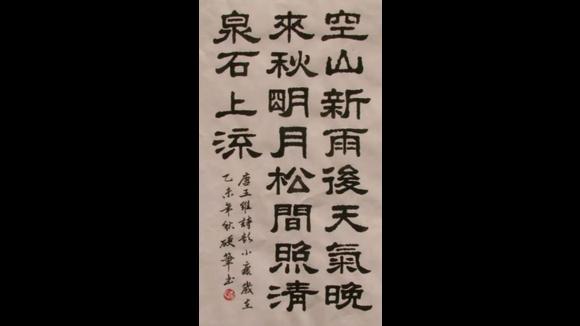 空山新雨後天氣晚
來秋明月松間照清
泉石上流
唐王維詩 小 歲在
乙未年秋硬筆書